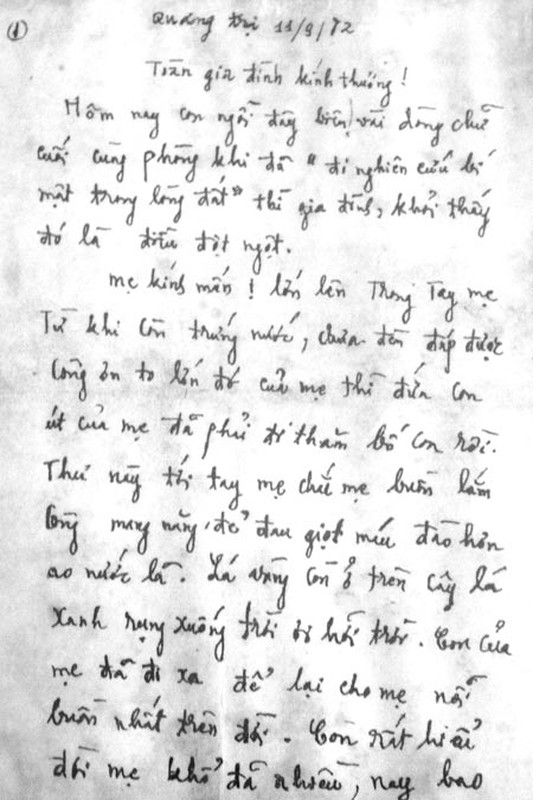 ①
Quảng trị 11/9/72
Toàn gia đình kính thương!
Hôm nay con ngồi đây biên vài dòng chữ
cuối cùng phòng khi đã "đi nghiên cứu bí
mật trong lòng đất" thì gia đình, khỏi thấy
đó là điều đột ngột.
mẹ kính mến! lớn lên Trong Tay mẹ
Từ khi còn trứng nước, chưa đền đáp được
Công ơn to lớn đó của mẹ thì đứa con
út của mẹ đã phải đi thăm bố con rồi.
Thư này tới tay mẹ chắc mẹ buồn lắm
Công mang nặng đẻ đau giọt máu đào hơn
ao nước lã. Lá vàng còn ở trên cây lá
xanh rụng xuống trời ơi hỡi trời. Con của
mẹ đã đi xa để lại cho mẹ nỗi
buồn nhất trên đời. Con rất hiểu
đời mẹ khổ đã nhiều, nay bao